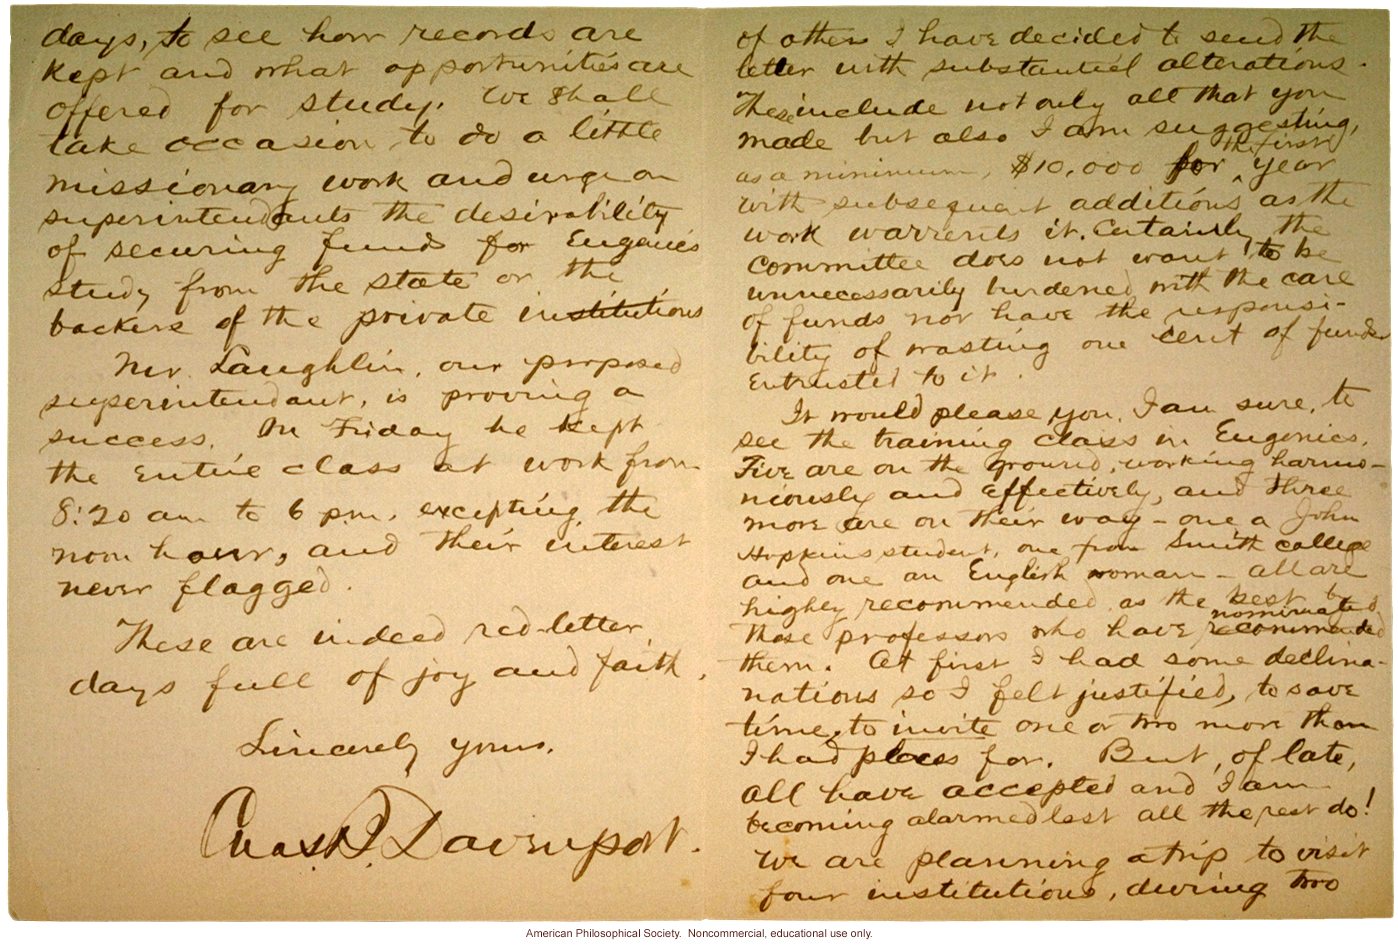 of others I have decided to send the
letter with substantial alterations.
These include not only all that you
made but also I am suggesting,
as a minimum, $10,000 for the first year
with subsequent additions as the
work warrents it. Certainly, the
committee does not want to be
unnecessarily burdened with the care
of funds nor have the responsi-
bility of wasting one cent of funds
entrusted to it.
It would please you, I am sure, to
see the training class in Eugenics.
Five are on the ground, working harmo-
niously and effectively, and three
more are on their way - one a John
Hopkins student, one from Smith college
and one an English woman - all are
highly recommended as the best by
those professors who have nominated recommended
them. At first I had some declina-
nations so I felt justified, to save
time, to invite one or two more than
I had places for. But, of late,
all have accepted and I am
becoming alarmed lest all the rest do!
We are planning a trip to visit
four institutions, during two
days, to see how records are
kept and what opportunities are
offered for study. We shall
take occasion to do a little
missionary work and urge on
superintendents the desirability
of securing funds for Eugenics
study from the state or the
backers of the private institutions
Mr. Laughlin, our proposed
superintendant, is proving a
success. On Friday he kept
the entire class at work from
8:20 am to 6 p.m. excepting the
noon hour, and their interest
never flagged.
These are indeed red-letter
days full of joy and faith.
Sincerely yours,
Chas. B. Davenport.
American Philosophical Society. Noncommercial, educational use only.